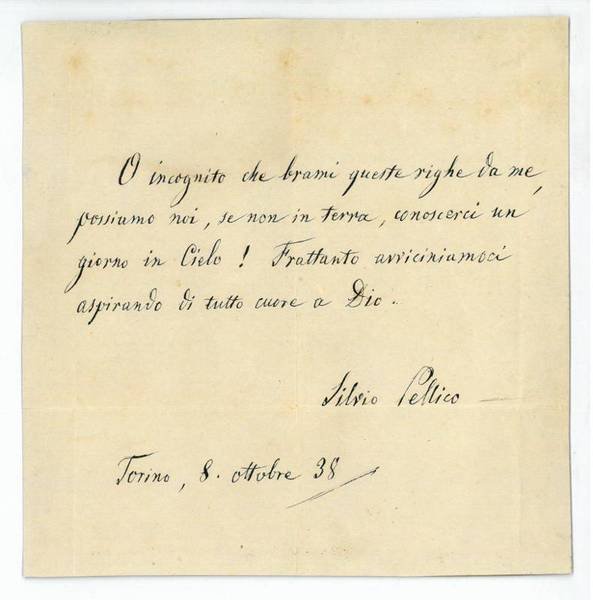 O incognito che brami queste righe da me,
possiamo noi, se non in terra, conoscerci un
giorno in Cielo! Frattanto avviciniamoci
aspirando di tutto cuore a Dio.
Silvio Pellico
Torino, 8. ottobre 38